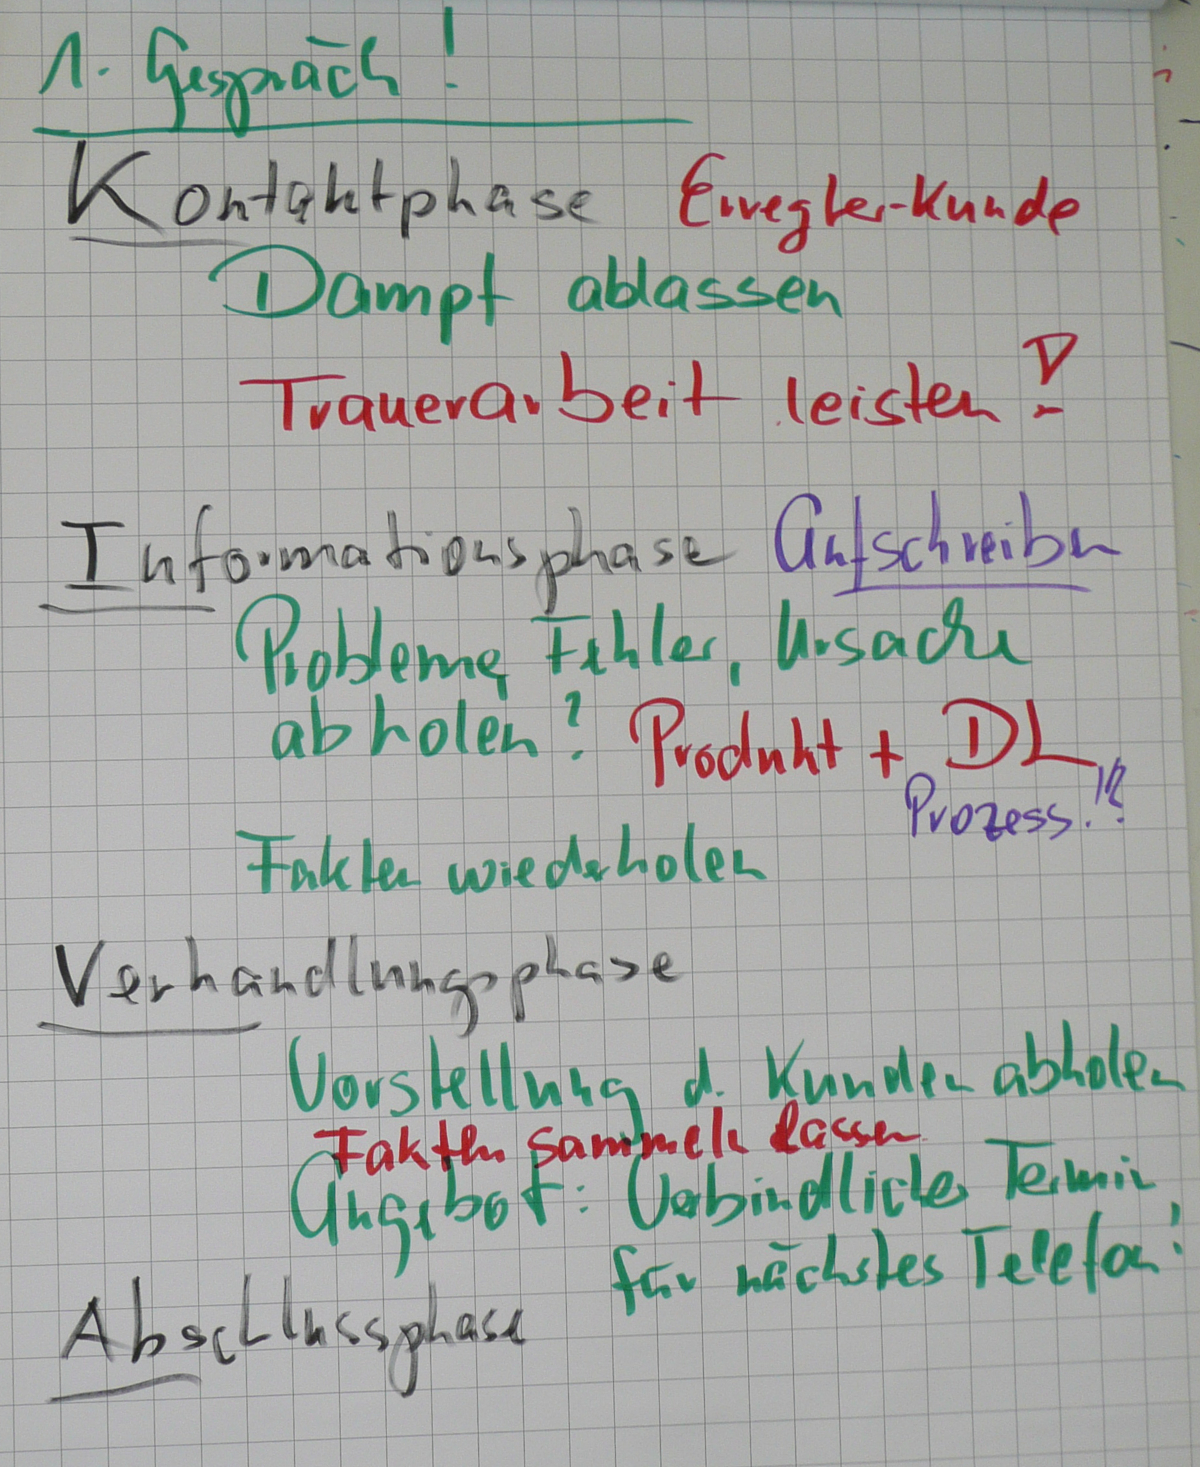 1. Gespräch!
Kontaktphase Erregter-Kunde
Dampf ablassen
Trauerarbeit leisten!
Informationsphase Aufschreiben
Probleme, Fehler, Ursache
abholen? Produkt + DL
Prozess!?
Fakten wiederholen
Verhandlungsphase
Vorstellung d. Kunden abholen
Fakten sammeln lassen
Angebot: Verbindlicher Termin
für nächstes Telefon!
Abschlussphase